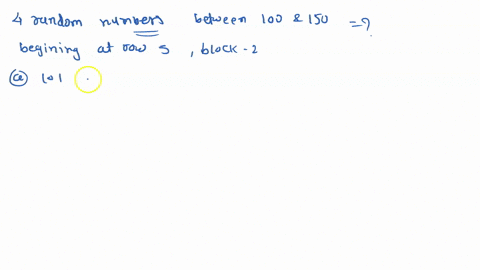 4 random numbers between 100 & 150 = ?
begining at row 5, block-2
(a) 101